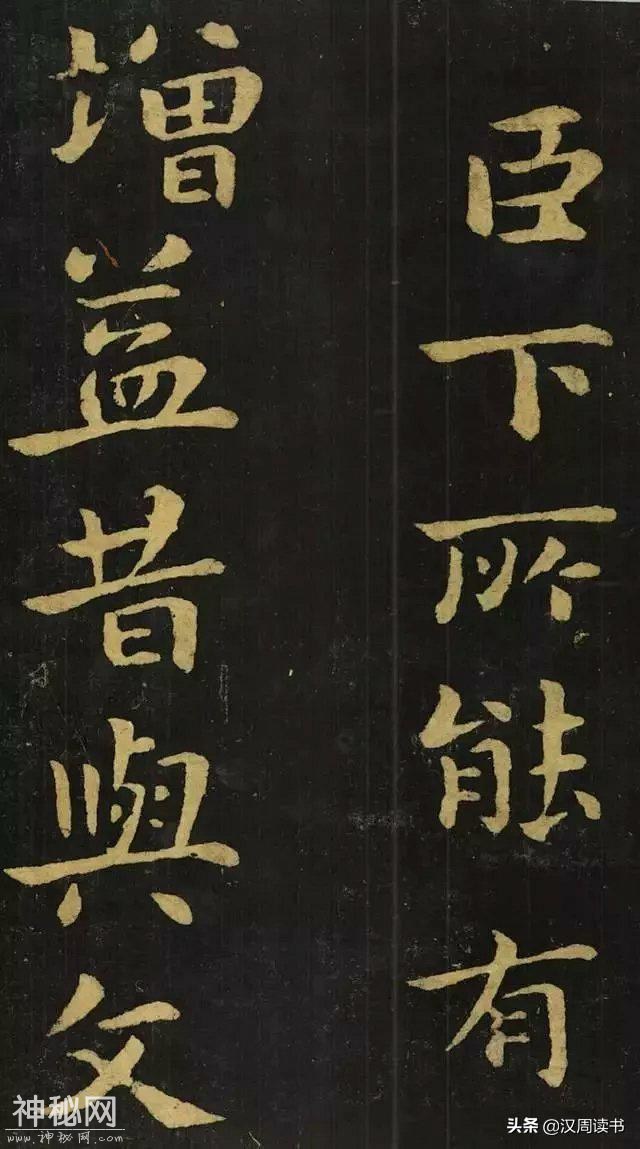 臣下所能有
增益昔與文
神秘网
www.神秘网.com
头条 @汉周读书